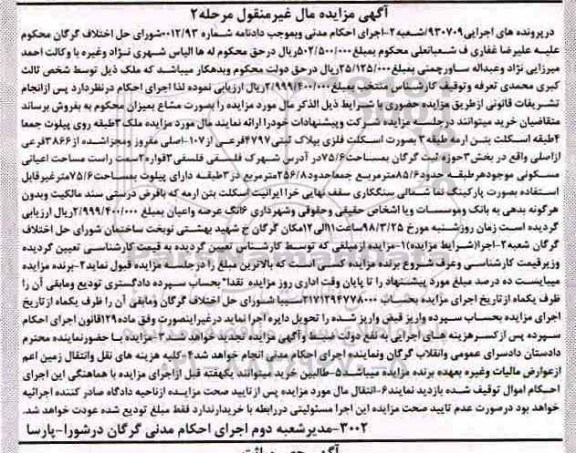 آگهی مزایده مال غیرمنقول مرحله۲
درپرونده های اجرایی۹۳۰۷۰۹/شعبه۲-اجرای احکام مدنی وبموجب دادنامه شماره ۰۰۱۲/۹۳شورای حل اختلاف گرگان محکوم
علیه علیرضا غفاری ف شعبانعلی محکوم بمبلغ۵۰۲/۵۰۰/۰۰۰ریال درحق محکوم له ها الیاس شهری نژاد وغیره با وکالت احمد
میرزایی نژاد وعبداله ساورچمنی بمبلغ۲۵/۱۲۵/۰۰۰ریال درحق دولت محکوم وبدهکار میباشد که ملک ذیل توسط شخص ثالث
کبری محمدی تعرفه وتوقیف کارشناس منتخب بمبلغ۲/۹۹۹/۴۰۰/۰۰۰ریال ارزیابی نموده لذا اجرای احکام درنظردارد پس ازانجام
تشریفات قانونی ازطریق مزایده حضوری با شرایط ذیل الذکر مال مورد مزایده را بصورت مشاع بمیزان محکوم به بفروش برساند
متقاضیان خرید میتوانند درجلسه مزایده شرکت وپیشنهادات خودرا ارائه نمایند مال مورد مزایده ملک۳طبقه روی پیلوت جمعا
۴طبقه اسکلت بتن ارمه طبقه۳ بصورت اسکلت فلزی بپلاک ثبتی۴۷۹۷فرعی از۱۰۷-اصلی مفروز ومجزاشده از۳۸۶۶فرعی
ازاصلی واقع در بخش۳حوزه ثبت گرگان بمساحت۷۵/۶در آدرس شهرک فلسفی فلسفی۳قواره۲سمت راست مساحت اعیانی
مسکونی موجودهرطبقه حدود۸۵/۶مترمربع جمعاحدود۲۵۶/۸مترمربع در۳طبقه دارای پیلوت بمساحت۷۵/۶مترغیرقابل
استفاده بصورت پارکینگ نما شمالی سنگکاری سقف نهایی خرا ایرانیت اسکلت بتن ارمه که بافرض درستی سند مالکیت وبدون
هرگونه بدهی به بانک وموسسات ویا اشخاص حقیقی وحقوقی وشهرداری ۶انگ عرصه واعیان بمبلغ ۲/۹۹۹/۴۰۰/۰۰۰ریال ارزیابی
گردیده است زمان روزشنبه مورخ ۹۸/۳/۲۵ساعت۱۱الی۱۲مکان گرگان خ شهید بهشتی نوبخت ساختمان شورای حل اختلاف
گرگان شعبه۲-اجرا(شرایط مزایده)۱-مزایده ازمبلغی که توسط کارشناس تعیین گردیده به قیمت کارشناسی تعیین گردیده
وزیرقیمت کارشناسی وعرف شروع برنده مزایده کسی است که بالاترین مبلغ را درجلسه مزایده قبول نماید۲-برنده مزایده
میبایست ده درصد مبلغ مورد پیشنهاد را تا پایان وقت اداری روز مزایده نقدا" بحساب سپرده دادگستری تودیع ومابقی آن را
ظرف یکماه ازتاریخ اجرای مزایده بحساب ۲۱۷۱۲۹۴۷۷۸۰۰۰سیبا شورای حل اختلاف گرگان ومابقی آن را ظرف یکماه ازتاریخ
اجرای مزایده بحساب سپرده واریز فیض واریز شده را تحویل دایره اجرا نماید درغیراینصورت وفق ماده۱۲۹قانون اجرای احکام
سپرده پس ازکسرهزینه های اجرایی به نفع دولت ضبط وآگهی مزایده تجدید خواهد شد۳-مزایده با حضورنماینده محترم
دادستان دادسرای عمومی وانقلاب گرگان ونماینده اجرای احکام مدنی انجام خواهد شد۴-کلیه هزینه های نقل وانتقال زمین اعم
ازعوارض مالیات وغیره بعهده برنده مزایده میباشد۵-طالبین خرید میتوانند یکهفته قبل ازاجرای مزایده با هماهنگی این اجرای
احکام اموال توقیف شده بازدید نمایند۶-انتقال مال مورد مزایده پس ازتایید صحت مزایده ازناحیه دادگاه صادر کننده اجرائیه
خواهد بود درصورت عدم تایید صحت مزایده این اجرا مسئولیتی دررابطه با خریدارندارد فقط مبلغ تودیع شده عودت خواهد شد.
۳۰۰۲-مدیرشعبه دوم اجرای احکام مدنی گرگان درشورا-پارسا